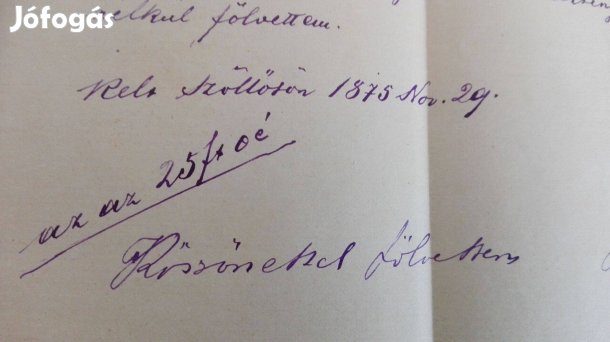 Jófogás
nelkul fölvettem.
Kelt Szőllősön 1875 Nov. 29.
az az 25 ft o é
Köszönettel fölvettem